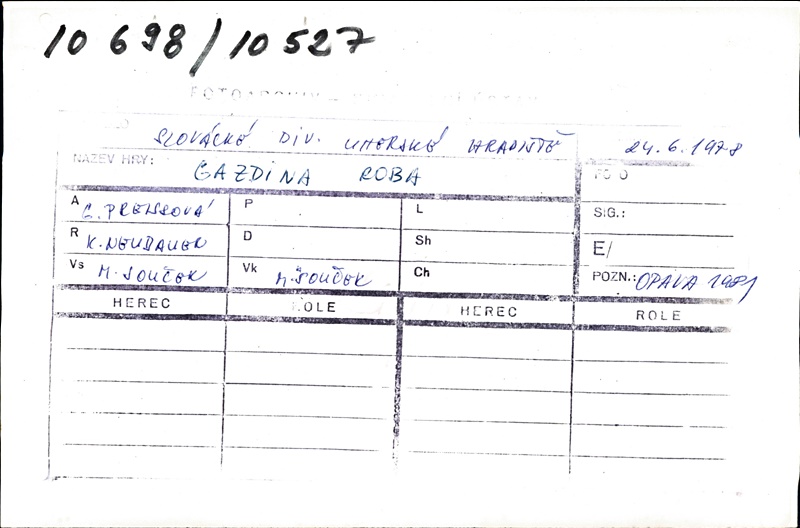 10 698/10 527
SLOVÁCKÉ DIV. UHERSKÉ HRADIŠTĚ 24.6.1978
NÁZEV HRY: GAZDINA ROBA FOTO
A G. PREISSOVÁ P L SIG.:
R K. NEUBAUER D Sh E/
Vs M. SOUČEK Vk M. SOUČEK Ch POZN.: OPAVA 1981
HEREC ROLE HEREC ROLE